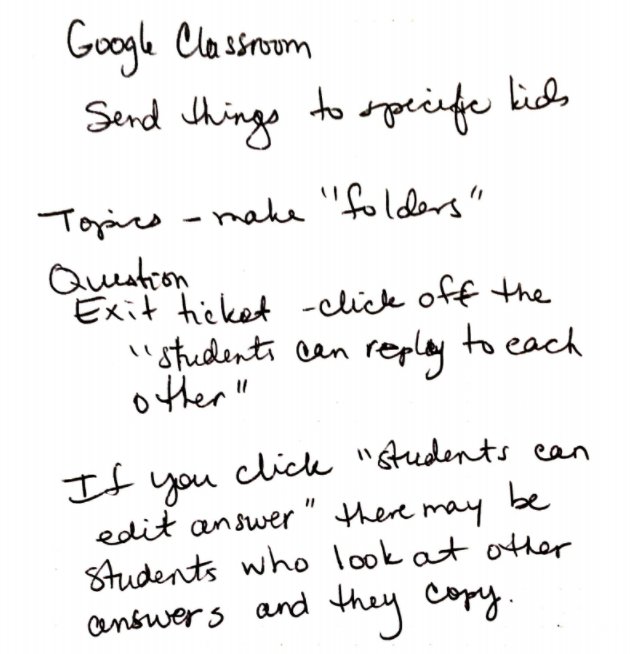 Google Classroom
Send things to specific kids
Topics - make "folders"
Question
Exit ticket - click off the
"students can reply to each
other"
If you click "students can
edit answer" there may be
students who look at other
answers and they copy.